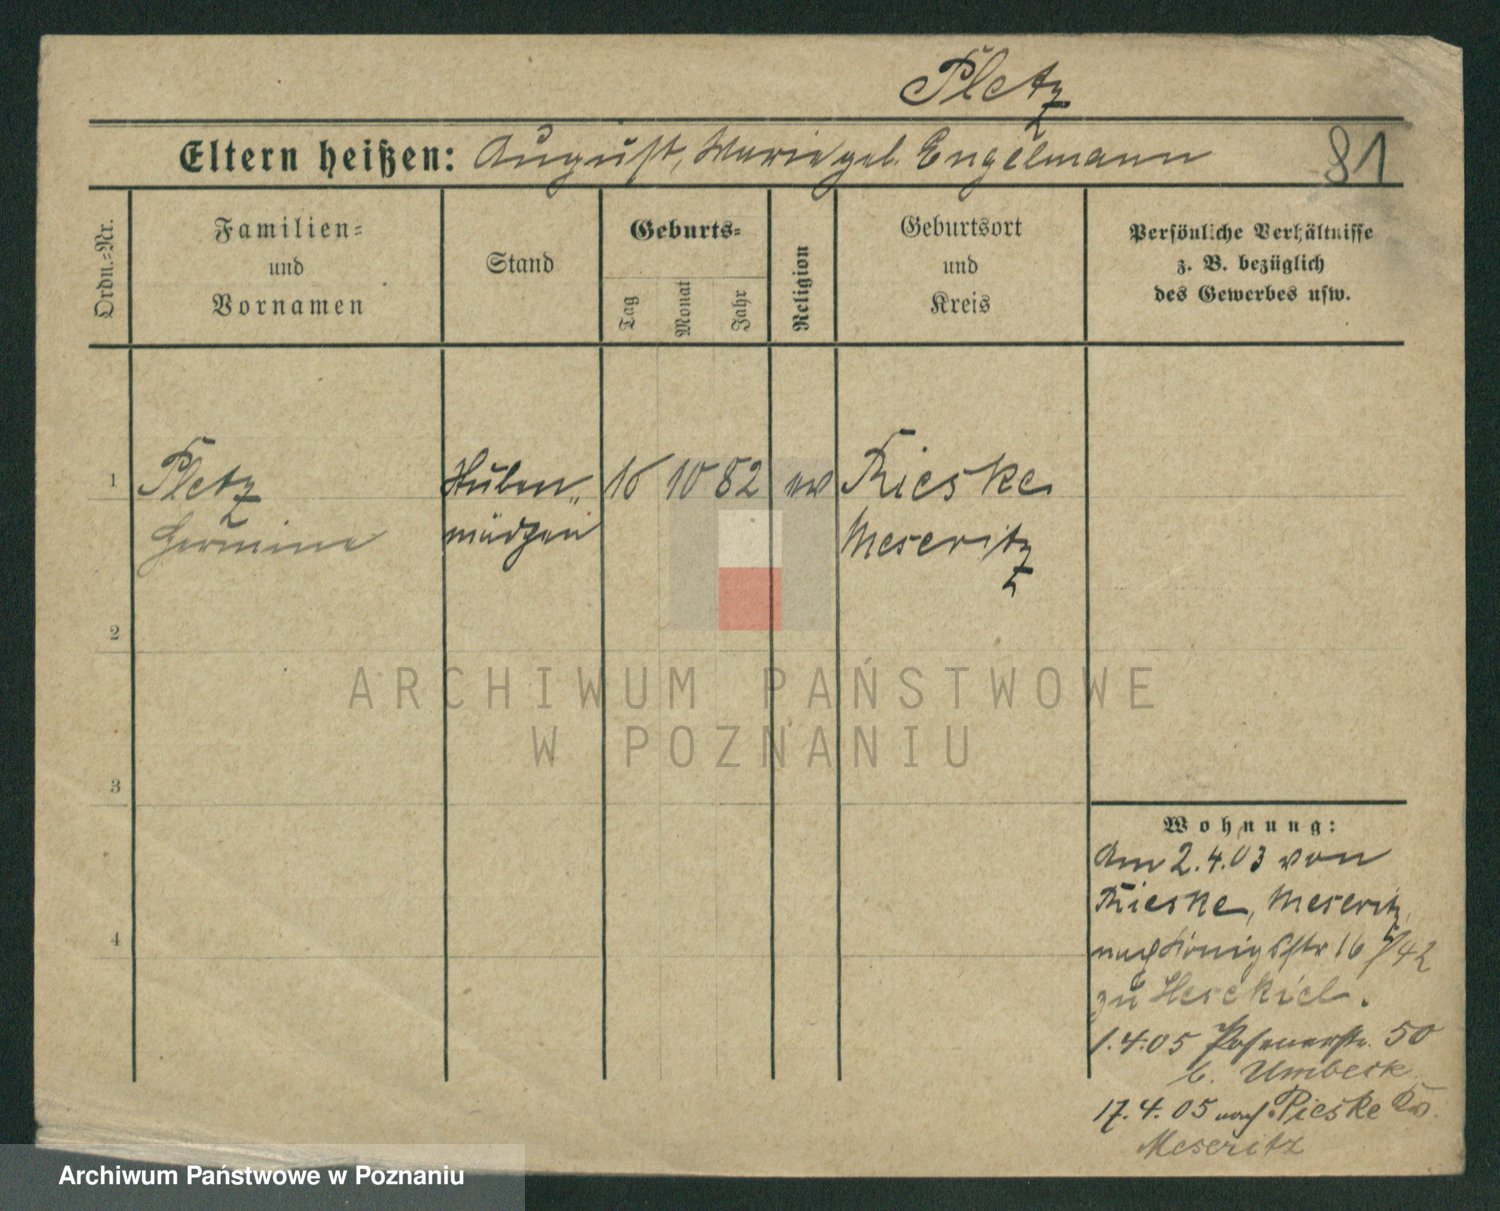 Pletz
Eltern heißen: August, Marie geb. Engelmann
81
Ordn.=Nr.
Familien=
und
Vornamen
Stand
Geburts=
Tag
Monat
Jahr
Religion
Geburtsort
und
Kreis
Persönliche Verhältnisse
z. B. bezüglich
des Gewerbes usw.
1
Pletz
Hermine
Stuben„
mädgen
16 10 82 ev
Pieske
Meseritz
2
3
4
Wohnung:
Am 2.4.03 von
Pieske, Meseritz,
nach Königstr 16
zu Hesekiel.
1.4.05 Posenerstr. 50
b. Umbeck
17.4.05 nach Pieske Kr.
Meseritz
ARCHIWUM PAŃSTWOWE
W POZNANIU
Archiwum Państwowe w Poznaniu